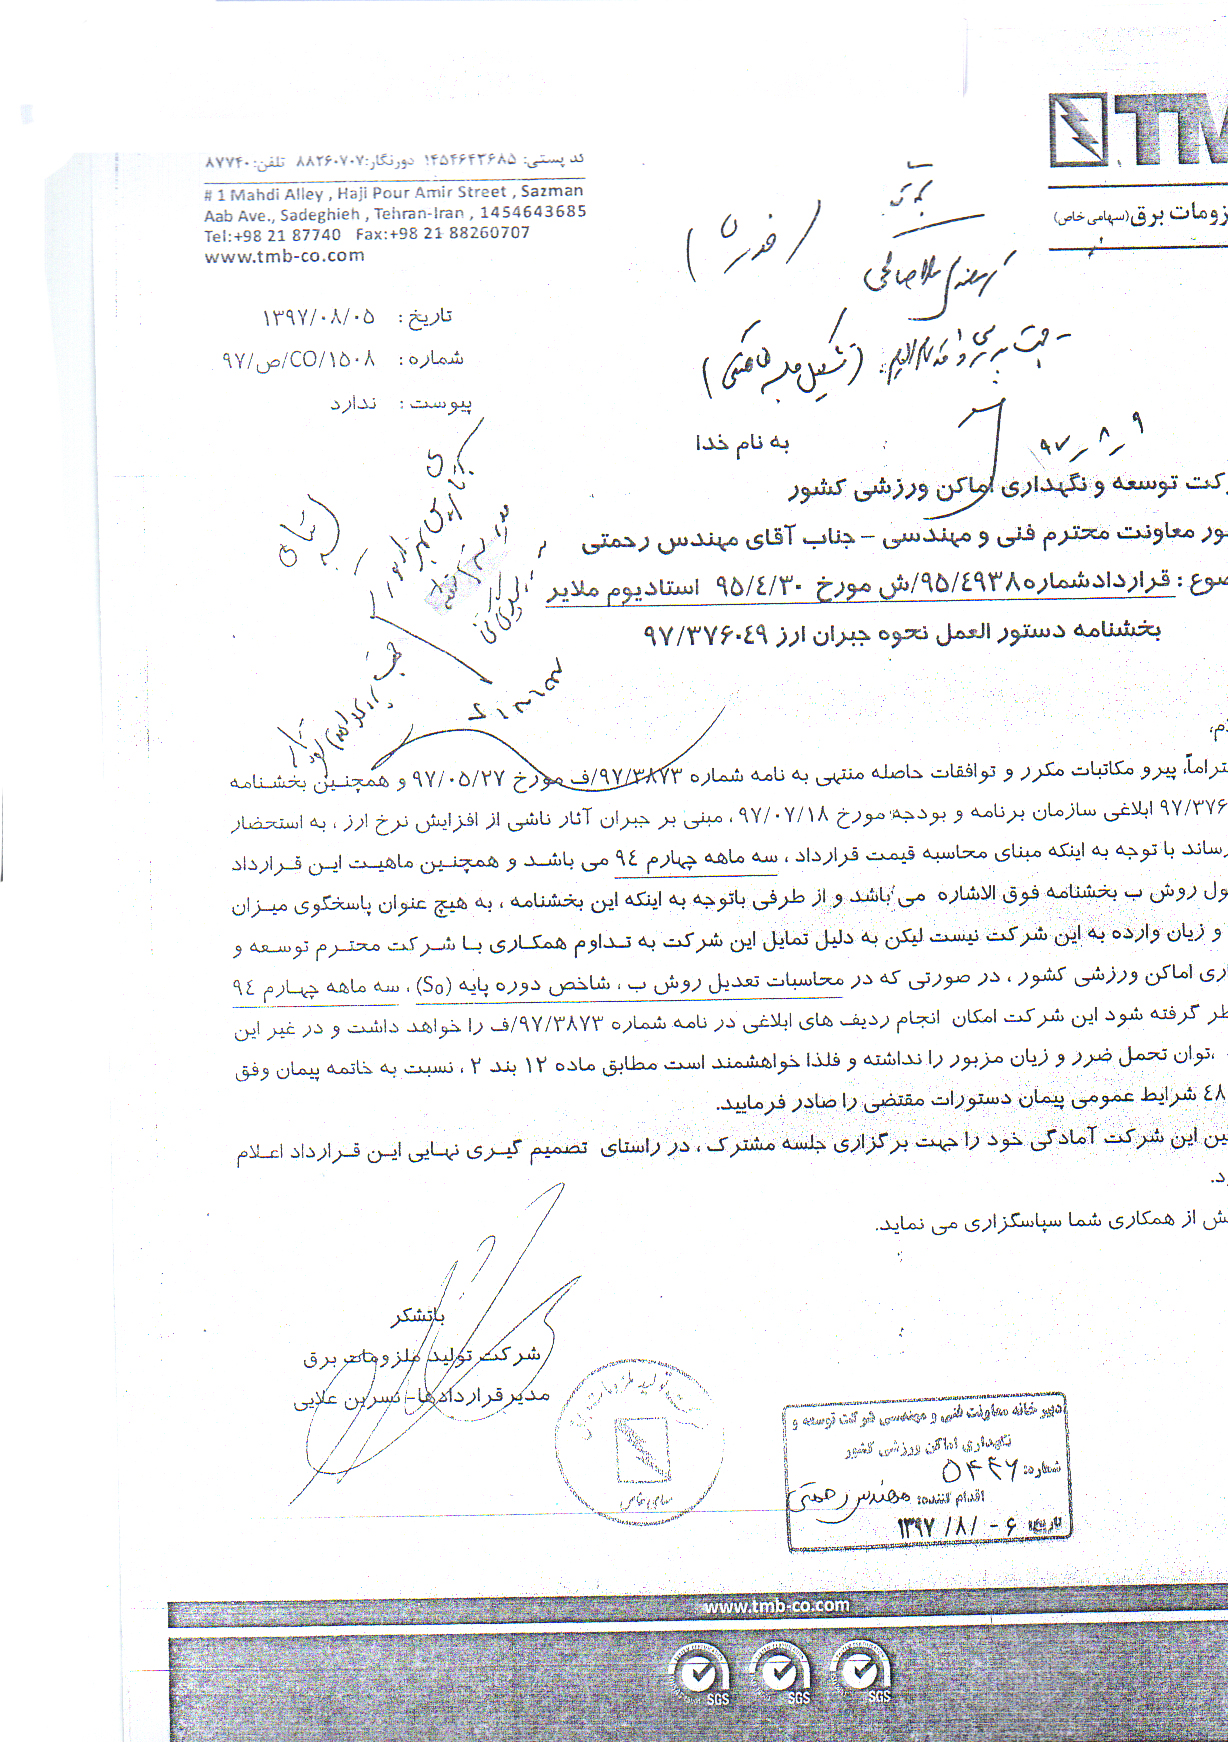 TM
زومات برق (سهامی خاص)
کد پستی: ۱۴۵۴۶۴۳۶۸۵ دورنگار: ۸۸۲۶۰۷۰۷ تلفن: ۸۷۷۴۰
# 1 Mahdi Alley , Haji Pour Amir Street , Sazman
Aab Ave., Sadeghieh , Tehran-Iran , 1454643685
Tel:+98 21 87740 Fax:+98 21 88260707
www.tmb-co.com
تاریخ : ۱۳۹۷/۰۸/۰۵
شماره : ۹۷/ص/CO/۱۵۰۸
پیوست : ندارد
(تشکیل جلسه هماهنگی)
۹۷/۸/۹
به نام خدا
کت توسعه و نگهداری اماکن ورزشی کشور
ور معاونت محترم فنی و مهندسی – جناب آقای مهندس رحمتی
ضوع : قرارداد شماره ۹۵/۴۹۳۸/ش مورخ ۹۵/۴/۳۰ استادیوم ملایر
بخشنامه دستور العمل نحوه جبران ارز ۹۷/۳۷۶۰۴۹
م،
تراماً، پیرو مکاتبات مکرر و توافقات حاصله منتهی به نامه شماره ۹۷/۳۸۷۳/ف مورخ ۹۷/۰۵/۲۷ و همچنین بخشنامه
۹۷/۳۷۶ ابلاغی سازمان برنامه و بودجه مورخ ۹۷/۰۷/۱۸ ، مبنی بر جبران آثار ناشی از افزایش نرخ ارز ، به استحضار
رساند با توجه به اینکه مبنای محاسبه قیمت قرارداد ، سه ماهه چهارم ۹۴ می باشد و همچنین ماهیت این قرارداد
ول روش ب بخشنامه فوق الاشاره می باشد و از طرفی باتوجه به اینکه این بخشنامه ، به هیچ عنوان پاسخگوی میزان
و زیان وارده به این شرکت نیست لیکن به دلیل تمایل این شرکت به تداوم همکاری با شرکت محترم توسعه و
اری اماکن ورزشی کشور ، در صورتی که در محاسبات تعدیل روش ب ، شاخص دوره پایه (S₀) ، سه ماهه چهارم ۹۴
ظر گرفته شود این شرکت امکان انجام ردیف های ابلاغی در نامه شماره ۹۷/۳۸۷۳/ف را خواهد داشت و در غیر این
، توان تحمل ضرر و زیان مزبور را نداشته و فلذا خواهشمند است مطابق ماده ۱۲ بند ۲ ، نسبت به خاتمه پیمان وفق
۴۸ شرایط عمومی پیمان دستورات مقتضی را صادر فرمایید.
ین این شرکت آمادگی خود را جهت برگزاری جلسه مشترک ، در راستای تصمیم گیری نهایی این قرارداد اعلام
د.
ش از همکاری شما سپاسگزاری می نماید.
باتشکر
شرکت تولید ملزومات برق
مدیر قراردادها- نسرین علایی
شرکت تولید ملزومات برق
سهامی خاص
دبیرخانه معاونت فنی و مهندسی شرکت توسعه و
نگهداری اماکن ورزشی کشور
شماره: ۵۴۴۶
اقدام کننده: مهندس رحمتی
تاریخ: ۱۳۹۷/۸/۰۶
www.tmb-co.com
SGS SGS SGS